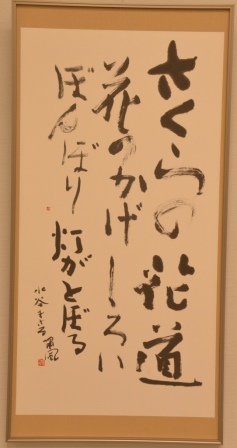 さくらの花道
花のかげしろい
ぼんぼり 灯がとぼる
水谷まさる